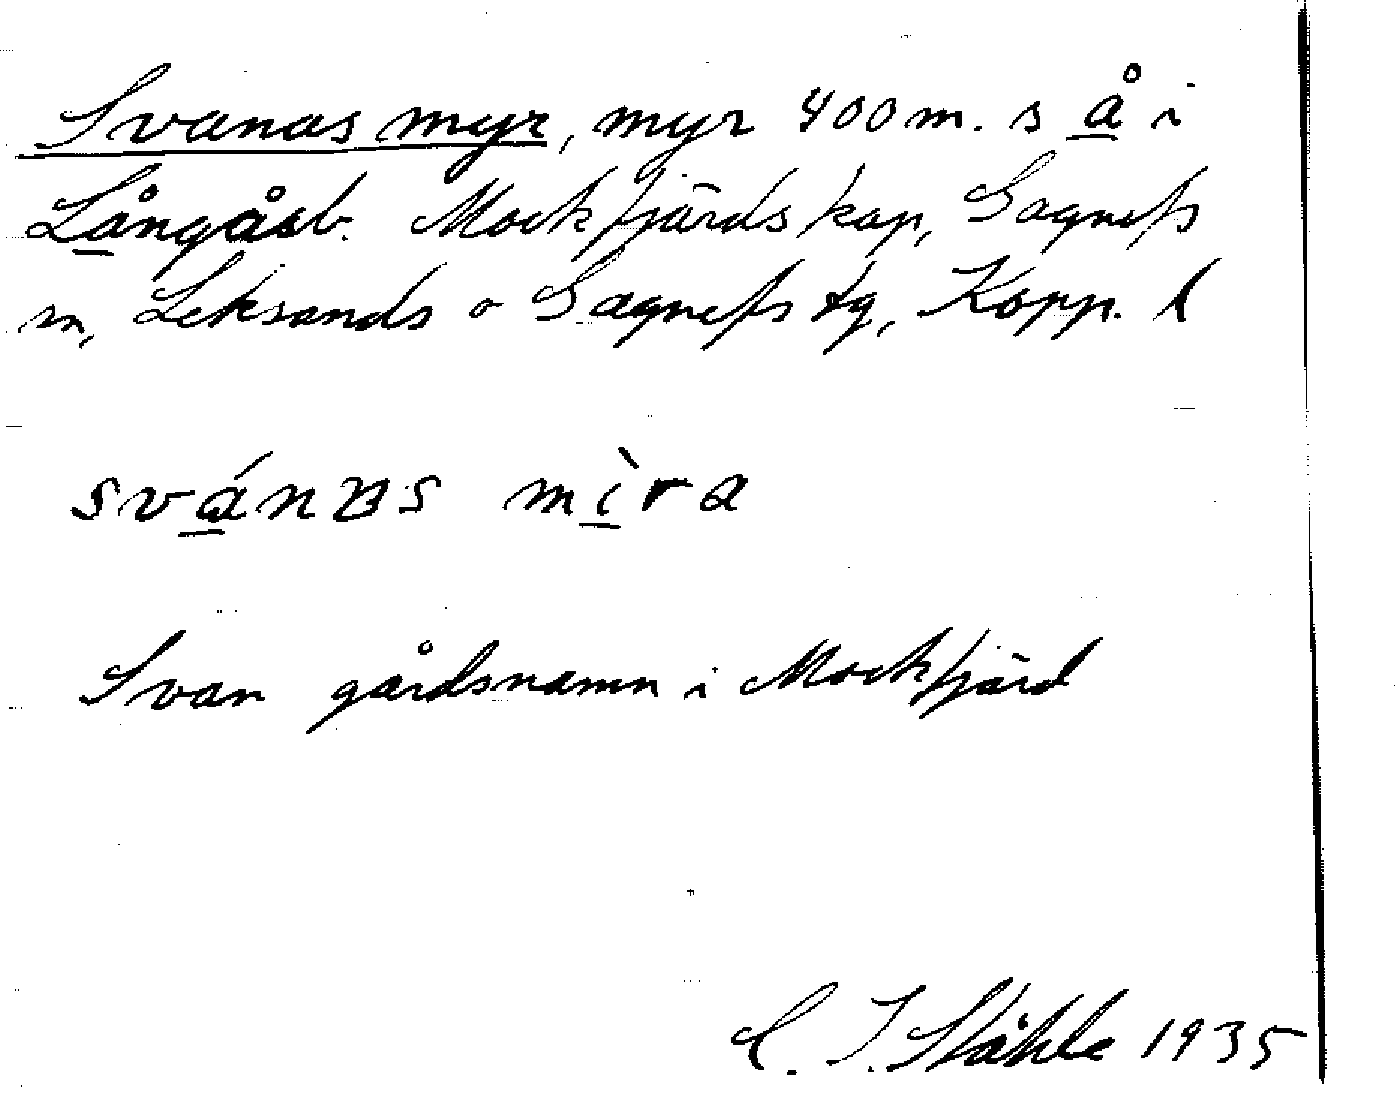 Svanas myr, myr 400 m. s å i
Långåsb. Mockfjärds kap, Gagnefs
sn, Leksands o Gagnefs tg, Kopp. l
svánɐs mìra
Svan gårdsnamn i Mockfjärd
C. I. Ståhle 1935